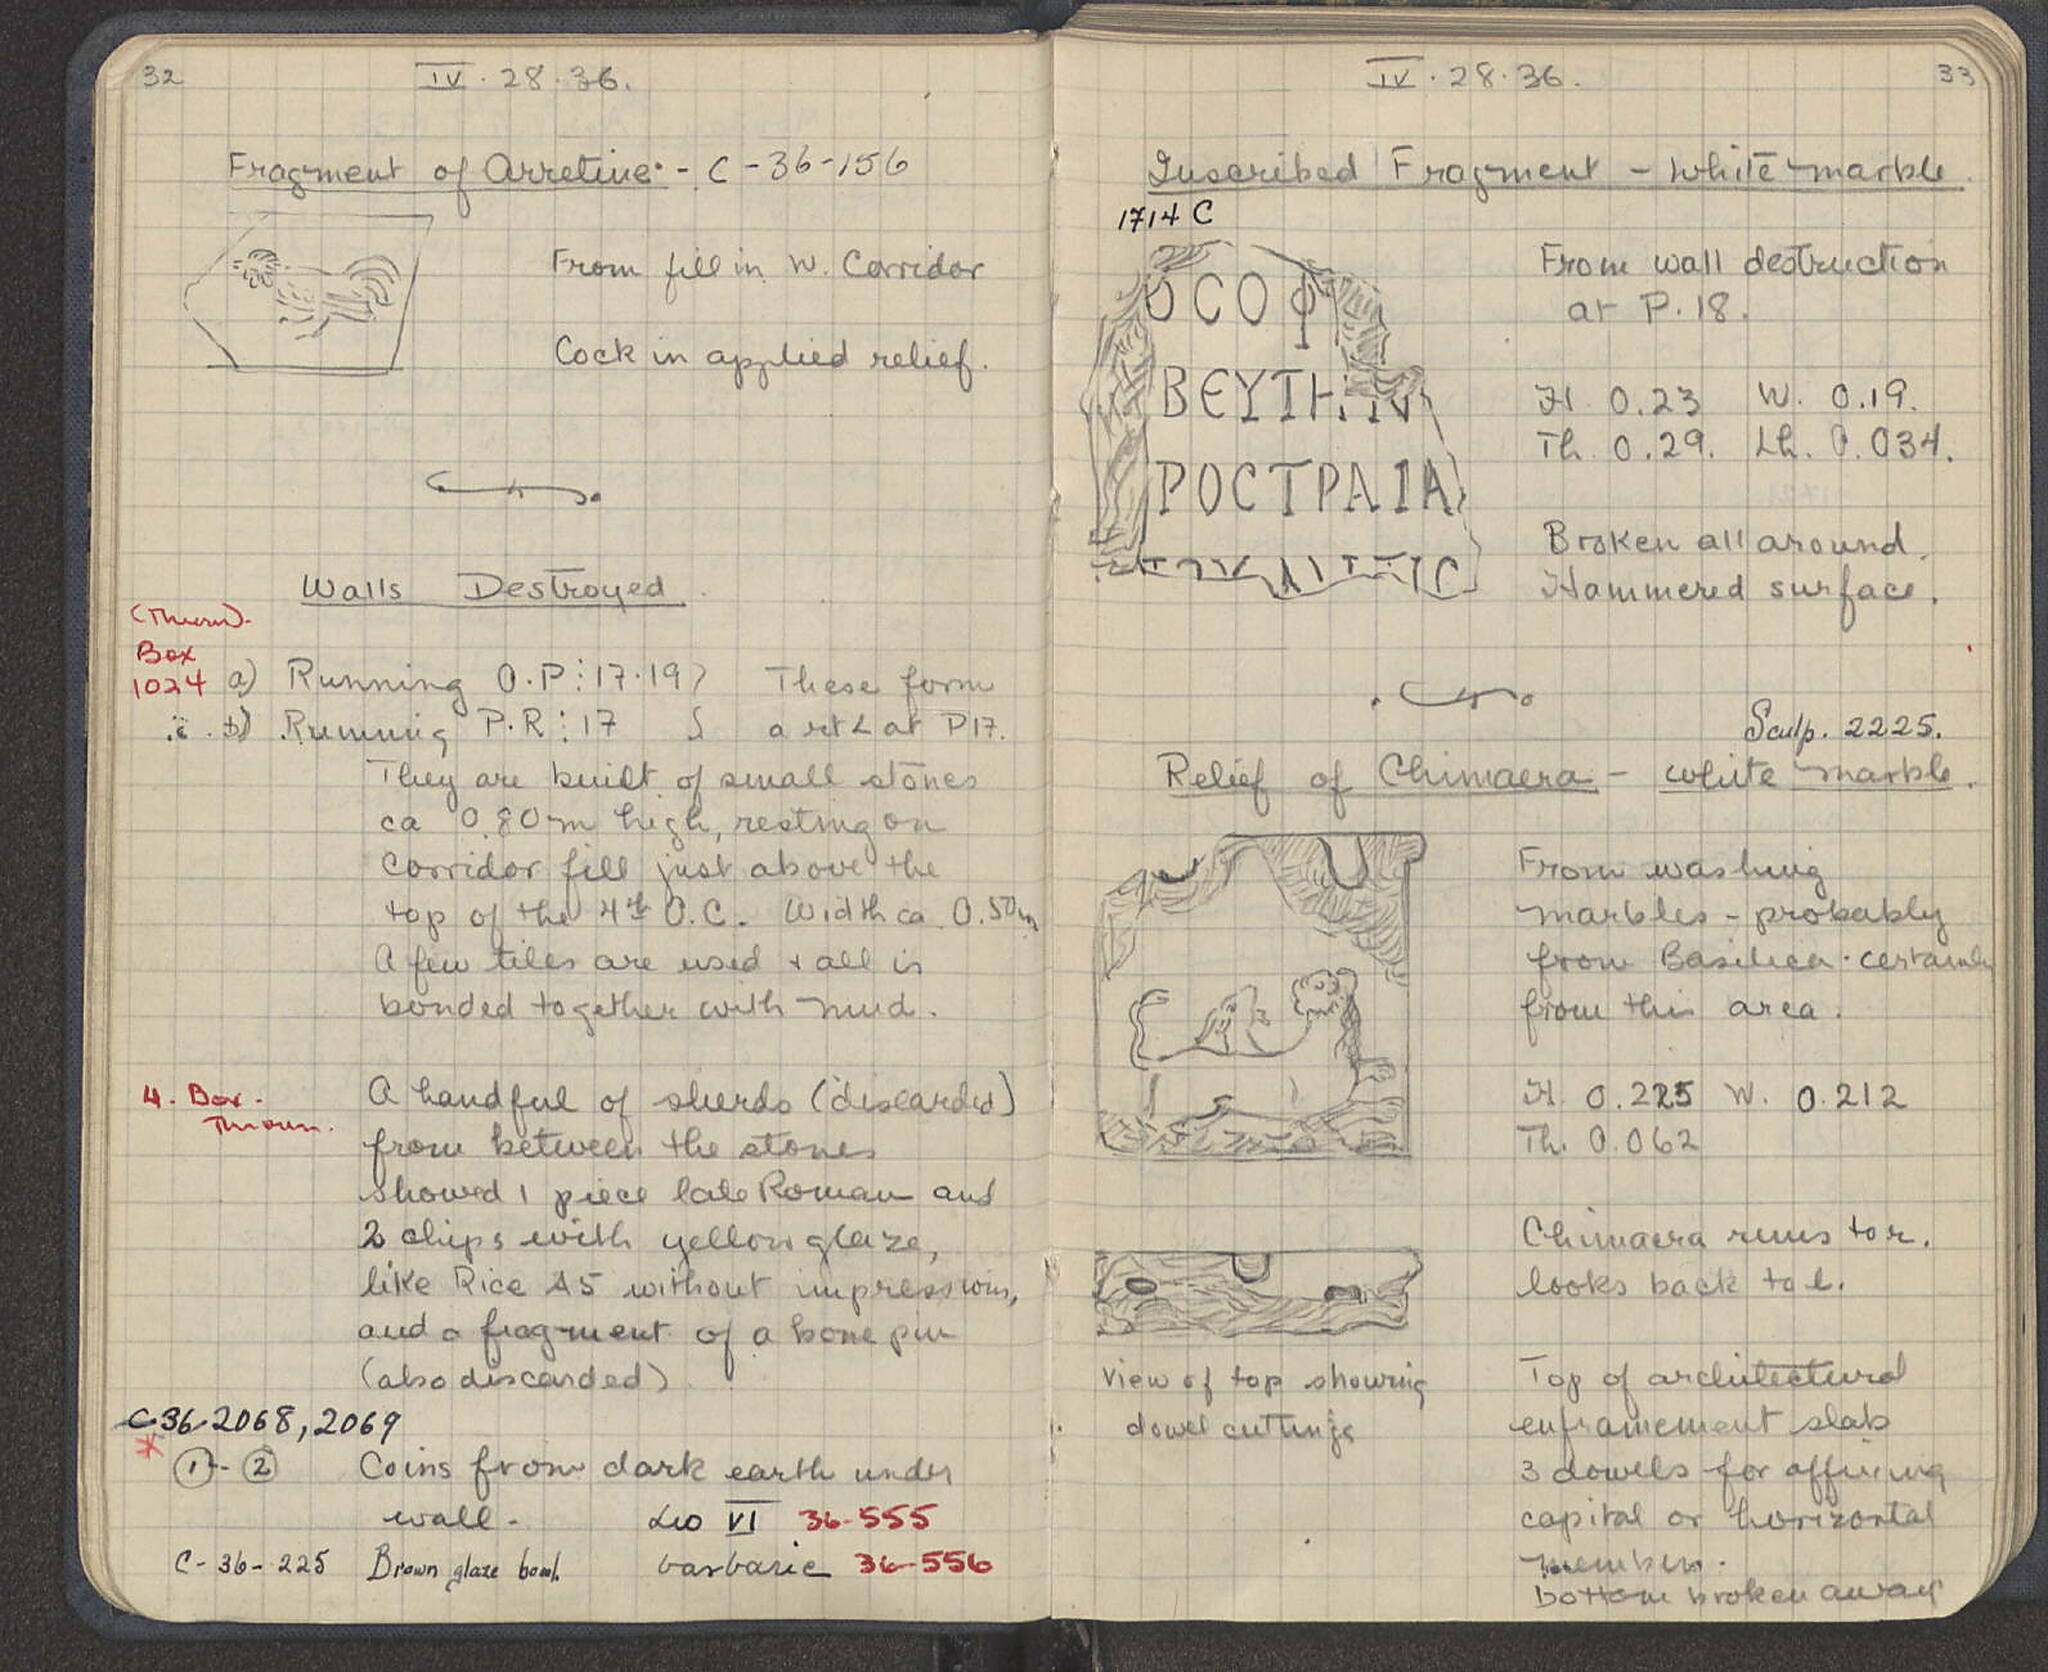 32
IV . 28 . 36.
Fragment of Arretine - C - 36 - 156
From fill in W. Corridor
Cock in applied relief.
Walls Destroyed
(Thrown).
Box
1024
a) Running O.P : 17.19 } These form
b) Running P.R : 17 } a rt ∠ at P17.
They are built of small stones
ca 0.80m high, resting on
corridor fill just above the
top of the 4th O.C. Width ca 0.50m
A few tiles are used + all is
bonded together with mud.
4. Box -
Thrown.
A handful of sherds (discarded)
from between the stones
showed 1 piece late Roman and
2 chips with yellow glaze,
like Rice A5 without impressions,
and a fragment of a bone pin
(also discarded)
C 36-2068, 2069
* ① - ② Coins from dark earth under
wall - Leo VI 36-555
C - 36 - 225 Brown glaze bowl. barbaric 36-556
IV . 28 . 36.
33
Inscribed Fragment - White marble.
1714 C
ΟCΟΦ
ΒΕΥΤΗ
ΡΟCΤΡΑΙΑ
From wall destruction
at P. 18.
H. 0.23 W. 0.19.
Th. 0.29. Lh. 0.034.
Broken all around.
Hammered surface.
Sculp. 2225.
Relief of Chimaera - white marble.
From washing
marbles - probably
from Basilica - certainly
from this area.
H. 0.225 W. 0.212
Th. 0.062
Chimaera runs to r.
looks back to l.
view of top showing
dowel cuttings
Top of architectural
enframement slab
3 dowels for affixing
capital or horizontal
member.
bottom broken away